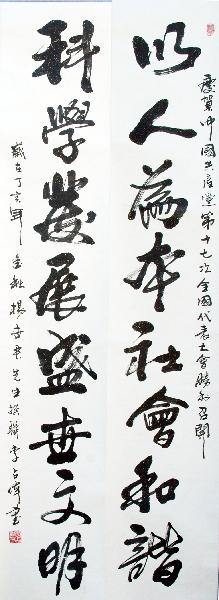 慶賀中國共產黨第十七次全國代表大會勝利召開
以人為本社會和諧
科學發展盛世文明
歲在丁亥年金秋楊先生撰聯李占偉書